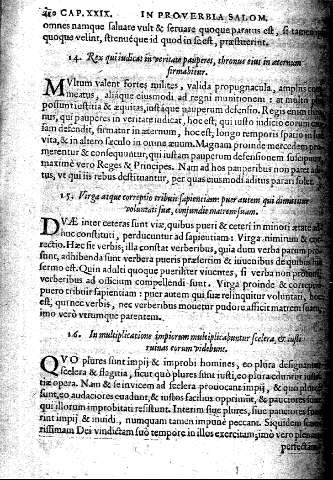 410 CAP. XXIX. IN PROVERBIA SALOM.
omnes namque saluare vult & seruare quoque paratus est, si tamen
quoque velint, strenuéque id quod in se est, præstiterint.
14. Rex qui iudicat in veritate pauperes, thronus eius in æternum
firmabitur.
MVltum valent fortes milites, valida propugnacula, amplus com-
meatus, aliáque eiusmodi ad regni munitionem: at multo
possunt iustitia & æquitas, iustáque pauperum defensio. Regis enim
nus, qui pauperes in veritate iudicat, hoc est, qui iusto iudicio eorum
sam defendit, firmatur in æternum, hoc est, longo temporis spatio in
vita, & in altero sæculo in omne æuum. Magnam proinde mercedem pro-
merentur & consequuntur, qui iustam pauperum defensionem suscipiunt,
maximè vero Reges & Principes. Nam ad hos pauperibus non patet
tus, vt qui iis rebus destituantur, per quas eiusmodi aditus parari solet.
15. Virga atque correptio tribuit sapientiam: puer autem qui dimittitur
voluntati suæ, confundit matrem suam.
DVÆ inter ceteras sunt viæ, quibus pueri & ceteri in minori ætate ad-
huc constituti, perducuntur ad sapientiam: Virga nimirum & cor-
rectio. Hæc fit verbis, illa constat verberibus, quia dum verba parum
sunt, adhibenda sunt verbera pueris præsertim & iuuenibus de quibus
sermo est. Quin adulti quoque pueriliter viuentes, si verba non
verberibus ad officium compellendi sunt. Virga proinde & correptio
puero tribuit sapientiam: puer autem qui suæ relinquitur voluntati, hoc
est, qui nec verbis, nec verberibus mouetur pudore afficit matrem suam,
imo verò vtrumque parentem.
16. In multiplicatione impiorum multiplicabuntur scelera, & iusti
ruinas eorum videbunt.
QVO plures sunt impij & improbi homines, eo plura designantur
scelera & flagitia, sicut quò plures sunt iusti, eo plura eduntur
tiæ opera. Nam & se inuicem ad scelera prouocant impij, & quo plures
sunt, eo audaciores euadunt, & iustos facilius opprimunt, & pauciores sunt
qui illorum improbitati resistunt. Interim siue plures, siue pauciores fue-
rint impij & mundi, numquam tamen impune peccant. Siquidem
rissimam Dei vindictam suo tempore in illos exercitam; imò vero
perfectam